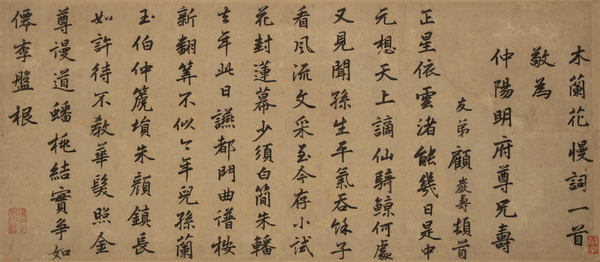 木蘭花慢詞一首
敬為
仲陽明府尊兄壽
友弟顧巖壽頓首
正星依雲渚能幾日是中
元想天上謫仙騎鯨何處
又見聞孫生平氣吞餘子
看風流文采至今存小試
花封蓮幕少須白簡朱轓
去年此日讌都門曲譜按
新翻算不似今年兒孫蘭
玉伯仲箎塤朱顏鎮長
如許待不教華髮照金
尊謾道蟠桃結實爭如
僊李盤根